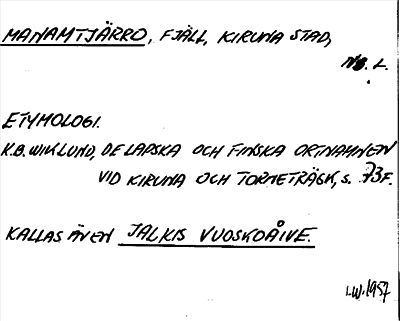 MANAMTJÄRRO, FJÄLL, KIRUNA STAD,
Nb. L.
ETYMOLOGI.
K.B. WIKLUND, DE LAPSKA OCH FINSKA ORTNAMNEN
VID KIRUNA OCH TORNETRÄSK, S. 73F.
KALLAS ÄVEN JALKIS VUOSKOÅIVE.
I.W. 1957